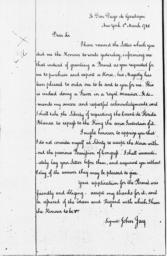 To Don Diego de Gardoqui
New York 1st March 1786
Dear Sir
I have received the Letter which you
did me the Honour to write yesterday, informing me
that instead of granting a Permit as you requested for
me to purchase and export a Horse, his Majesty has
been pleased to order one to be sent to you for me. This
is indeed doing a Favor in a royal manner. It de-
mands my sincere and respectful acknowledgments, and
I shall take the Liberty of requesting the Count de Florida
Blanca to express to the King the sense I entertain of it.
I ought however to apprize you that
I do not consider myself at Liberty to accept the Horse with-
out the previous Permission of Congress. I shall immedi-
ately lay your Letter before them, and acquaint you without
Delay of the answer they may be pleased to give.
Your application for the Permit was
friendly and obliging; accept my thanks for it, and
be assured of the Esteem and Regard with which I have
the Honour to be &c
Signed John Jay